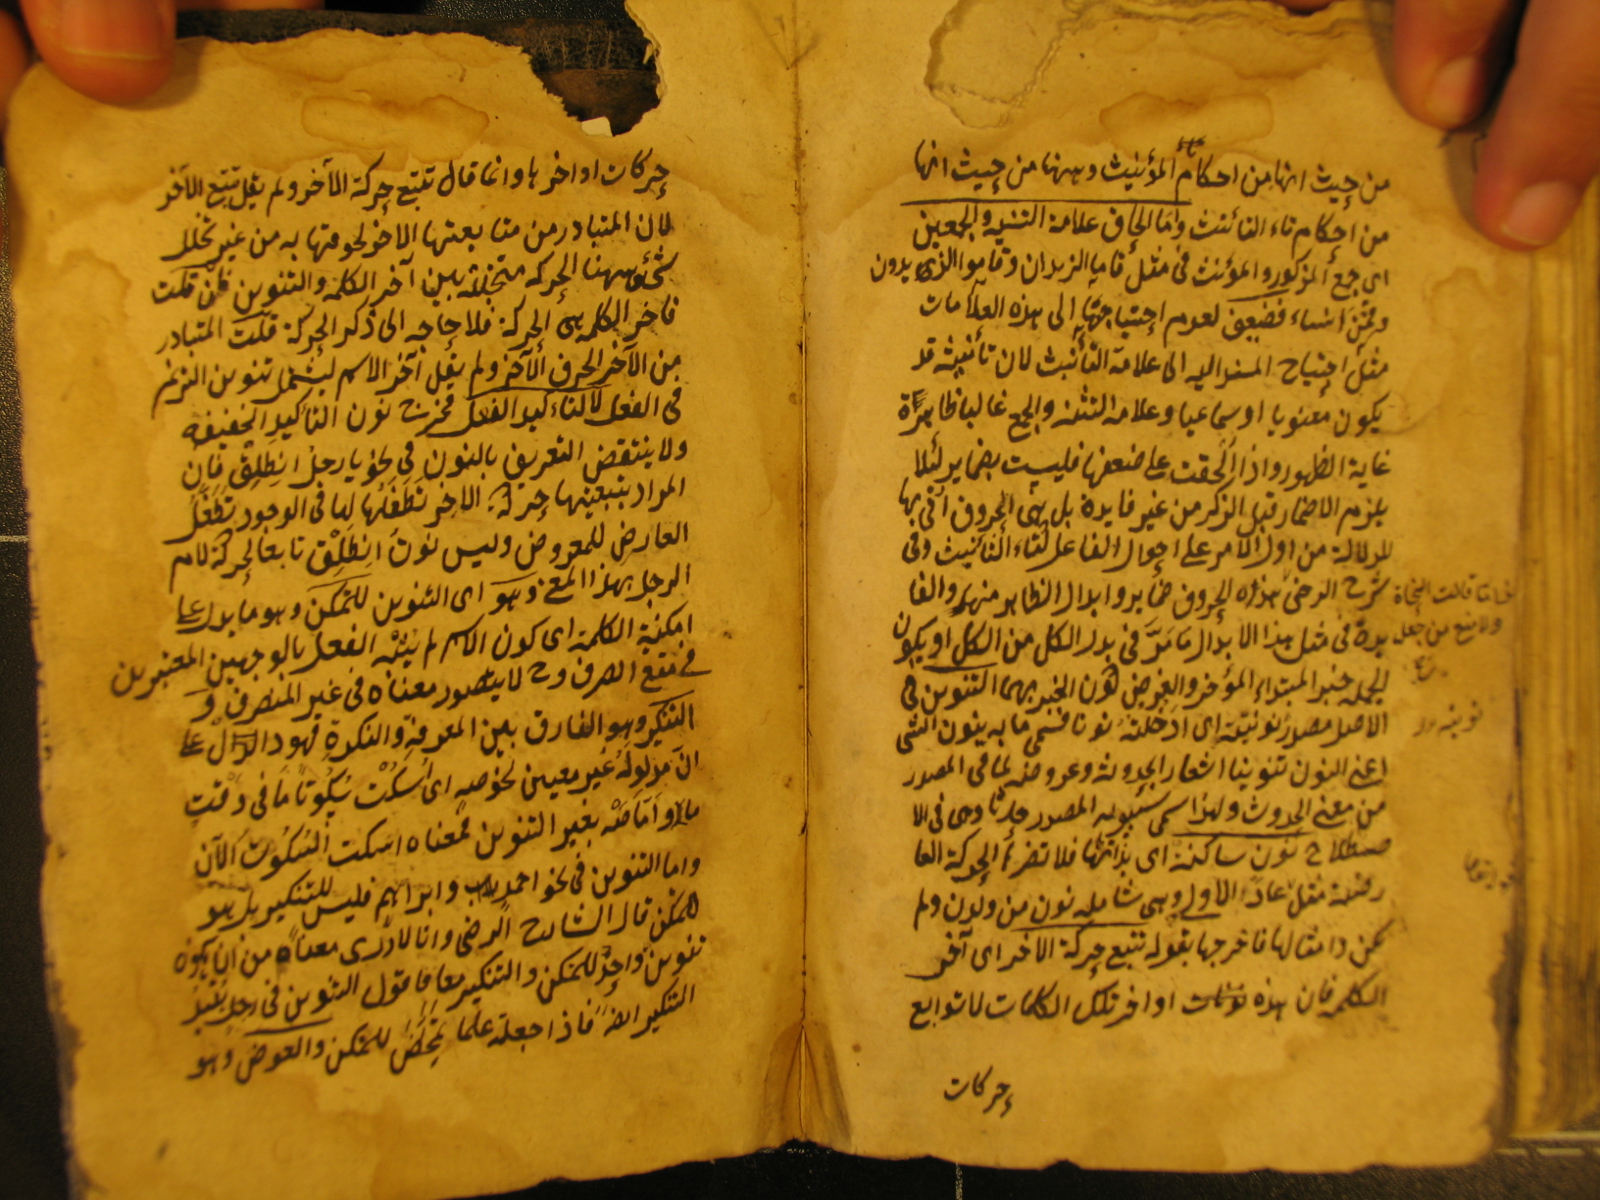 من حيث انها من احكام المؤنيث وههنا من حيث انها
تاء
من احكام تاء التأنيث واما الحاق علامة التثنيه والجمعين
اى جمع المذكور والمؤنث فى مثل قاما الزيدان وقاموا الزيدون
وقمن النساء فضعيف لعدم احتياجها الى هذه العلامات
مثل احتياج المسند اليه الى علامة التأنيث لان تأنيثه قد
يكون معنويا او سماعيا وعلامة التثنيه والجمع غالبا ظاهرة
غاية الظهور واذا الحقت على ضعفها فليست بضماير لئلا
يلزم الاضمار قبل الذكر من غير فايدة بل هى الحروف أتى بها
للدلالة من اول الامر على احوال الفاعل كتاء التأنيث وفى
شرح الرضى هذه الحروف ضماير وابدال الظاهر منها والفا
يدة فى مثل هذا الابدال ما مرّ فى بدل الكل من الكل او يكون
الجمله خبر المبتداء المؤخر والغرض كون الخبر مهما التنوين فى
الاصل مصدر نونيته اى ادخلته نونا فسمى ما به ينون الشى
اعنى النون تنوينا اشعارا بحدوثه وعروضه لما فى المصدر
من معنى الحدوث ولهذا سمى سيبويه المصدر حدثا وهى فى الا
صطلاح نون ساكنة اى بذاتها فلا تضر الحركة العا
رضة مثل عادّ الاولى وهى شامله نون من ولدن ولم
يكن وامثالها فاخرجها بقوله تتبع حركة الاخر اى آخر
الكلمه فان هذه نونات اواخر تلك الكلمات لا توابع
حركات
ولا منع من جعل
حركات اواخرها وانما قال تتبع حركة الآخر ولم يقل تتبع الآخر
لان المتبادر من متابعتها الاخر لحوقها به من غير تخلل
شئ وههنا الحركه متخللة بين آخر الكلمه والتنوين فان قلت
فاخر الكلمه هى الحركة فلا حاجه الى ذكر الحركة قلت المتبادر
من الآخر الحرف الآخر ولم يقل آخر الاسم ليشمل تنوين الترنم
فى الفعل لا لتاءكيد الفعل فخرج نون التأكيد الخفيفه
ولا ينتقض التعريف بالنون فى نحو يا رجل انطلق فان
المراد بتبعيتها حركة الاخر تطفلها لها فى الوجود تطفل
العارض للمعروض وليس نون انطلق تابعا لحركة لام
الرجل بهذا المعنى وهو اى التنوين للتمكن وهو ما يدل على
امكنية الكلمة اى كون الاسم لم يشبه الفعل بالوجهين المعتبرين
فى منع الصرف وح لا يتصور معناه فى غير المنصرف و
التنكير وهو الفارق بين المعرفه والنكرة فهو دالّ على
انّ مدلوله غير معين نحو صهٍ اى اُسكت سكوتا ما فى وقت
ما واما صه بغير التنوين فمعناه اسكت السكوت الآن
واما التنوين فى نحو احمد وابراهيم فليس للتنكير بل هو
للتمكن قال الشارح الرضى وانا لا ارى معناه من ان يكون
تنوين واحد للتمكن والتنكير معا فاقول التنوين فى رجل يفيد
التنكير ايضا فاذا جعلته علما تمحض للتمكن والعوض وهو